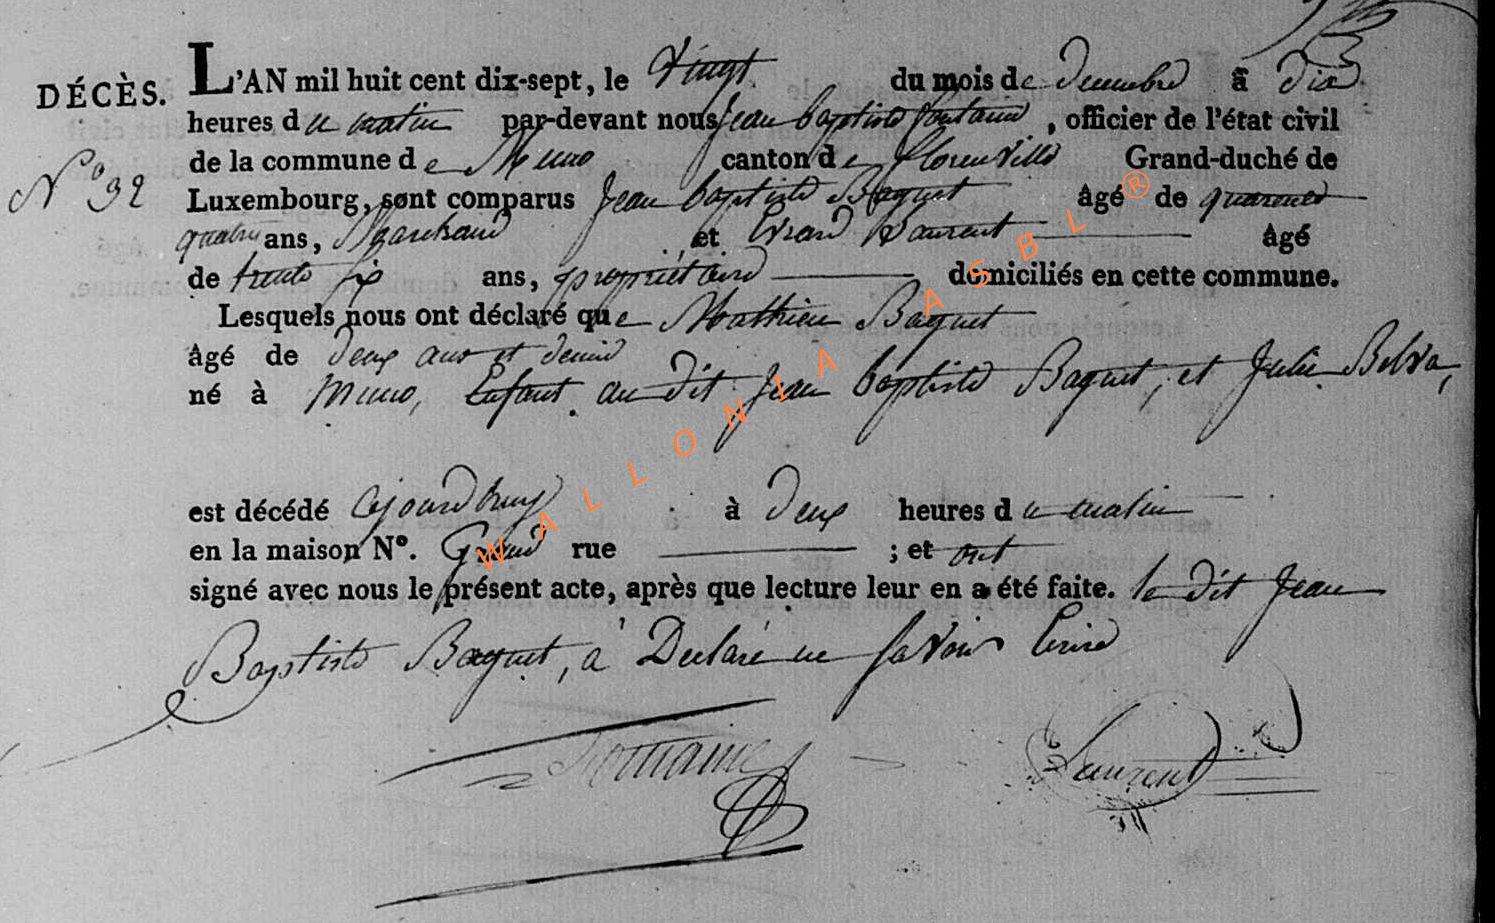 DÉCÈS. L'AN mil huit cent dix-sept, le Vingt du mois de decembre à dix
heures du matin par-devant nous Jean baptiste fontaine, officier de l'état civil
de la commune de Muno canton de florenville Grand-duché de
N° 32 Luxembourg, sont comparus Jean baptiste Baquet âgé de quarente
quatre ans, Marchand et Evrard Laurent âgé
de trente six ans, propriétaire domiciliés en cette commune.
Lesquels nous ont déclaré que Mathieu Baquet
âgé de deux ans et demie
né à Muno, Enfant au dit Jean baptiste Baquet, et Julie
est décédé ajourdhuy à deux heures du matin
en la maison N°. Grand rue ; et ont
signé avec nous le présent acte, après que lecture leur en a été faite. le dit Jean
Baptiste Baquet, à Declaré ne savoir Ecrire
fontaine Laurent
WALLONIA ASBL ®